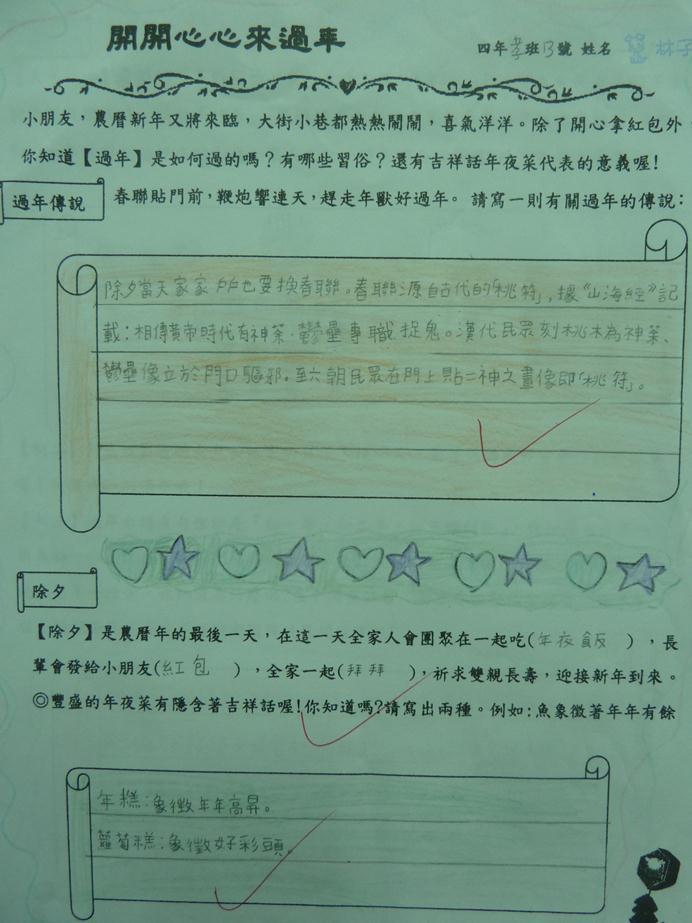 開開心心來過年
四年孝班13號 姓名 林子
小朋友，農曆新年又將來臨，大街小巷都熱熱鬧鬧，喜氣洋洋。除了開心拿紅包外，
你知道【過年】是如何過的嗎？有哪些習俗？還有吉祥話年夜菜代表的意義喔！
過年傳說 春聯貼門前，鞭炮響連天，趕走年獸好過年。 請寫一則有關過年的傳說：
除夕當天家家戶戶也要換春聯。春聯源自古代的「桃符」，據《山海經》記
載：相傳黃帝時代有神荼、鬱壘專職捉鬼。漢代民眾刻桃木為神荼、
鬱壘像立於門口驅邪。至六朝民眾在門上貼二神之畫像即「桃符」。
除夕
【除夕】是農曆年的最後一天，在這一天全家人會團聚在一起吃(年夜飯 )，長
輩會發給小朋友(紅包 )，全家一起(拜拜 )，祈求雙親長壽，迎接新年到來。
◎豐盛的年夜菜有隱含著吉祥話喔！你知道嗎？請寫出兩種。例如：魚象徵著年年有餘
年糕：象徵年年高昇。
蘿蔔糕：象徵好彩頭。